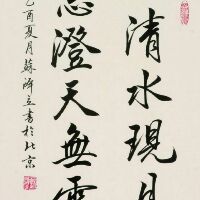 清水現月
澄天無雲
乙酉夏月蘇澤立書於北京